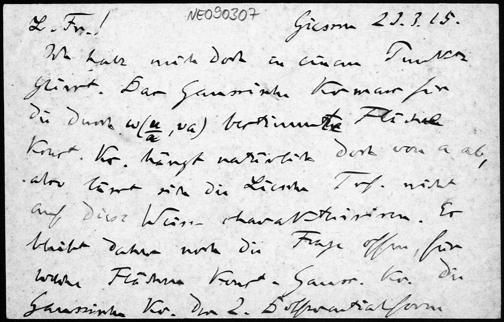 NE090307
L. Fr.! Giessen 23.3.15.
Ich habe mich doch in einem Punkte
geirrt. Das Gaussische Kr.mass für
die durch w(u/a, va) bestimmte Fläche
konst. Kr. hängt natürlich doch von a ab,
also lässt sich die Liesche Trf. nicht
auf diese Weise charakterisieren. Es
bleibt daher noch die Frage offen, für
welche Flächen konst. Gauss. Kr. die
Gaussische Kr. der 2. Differentialform